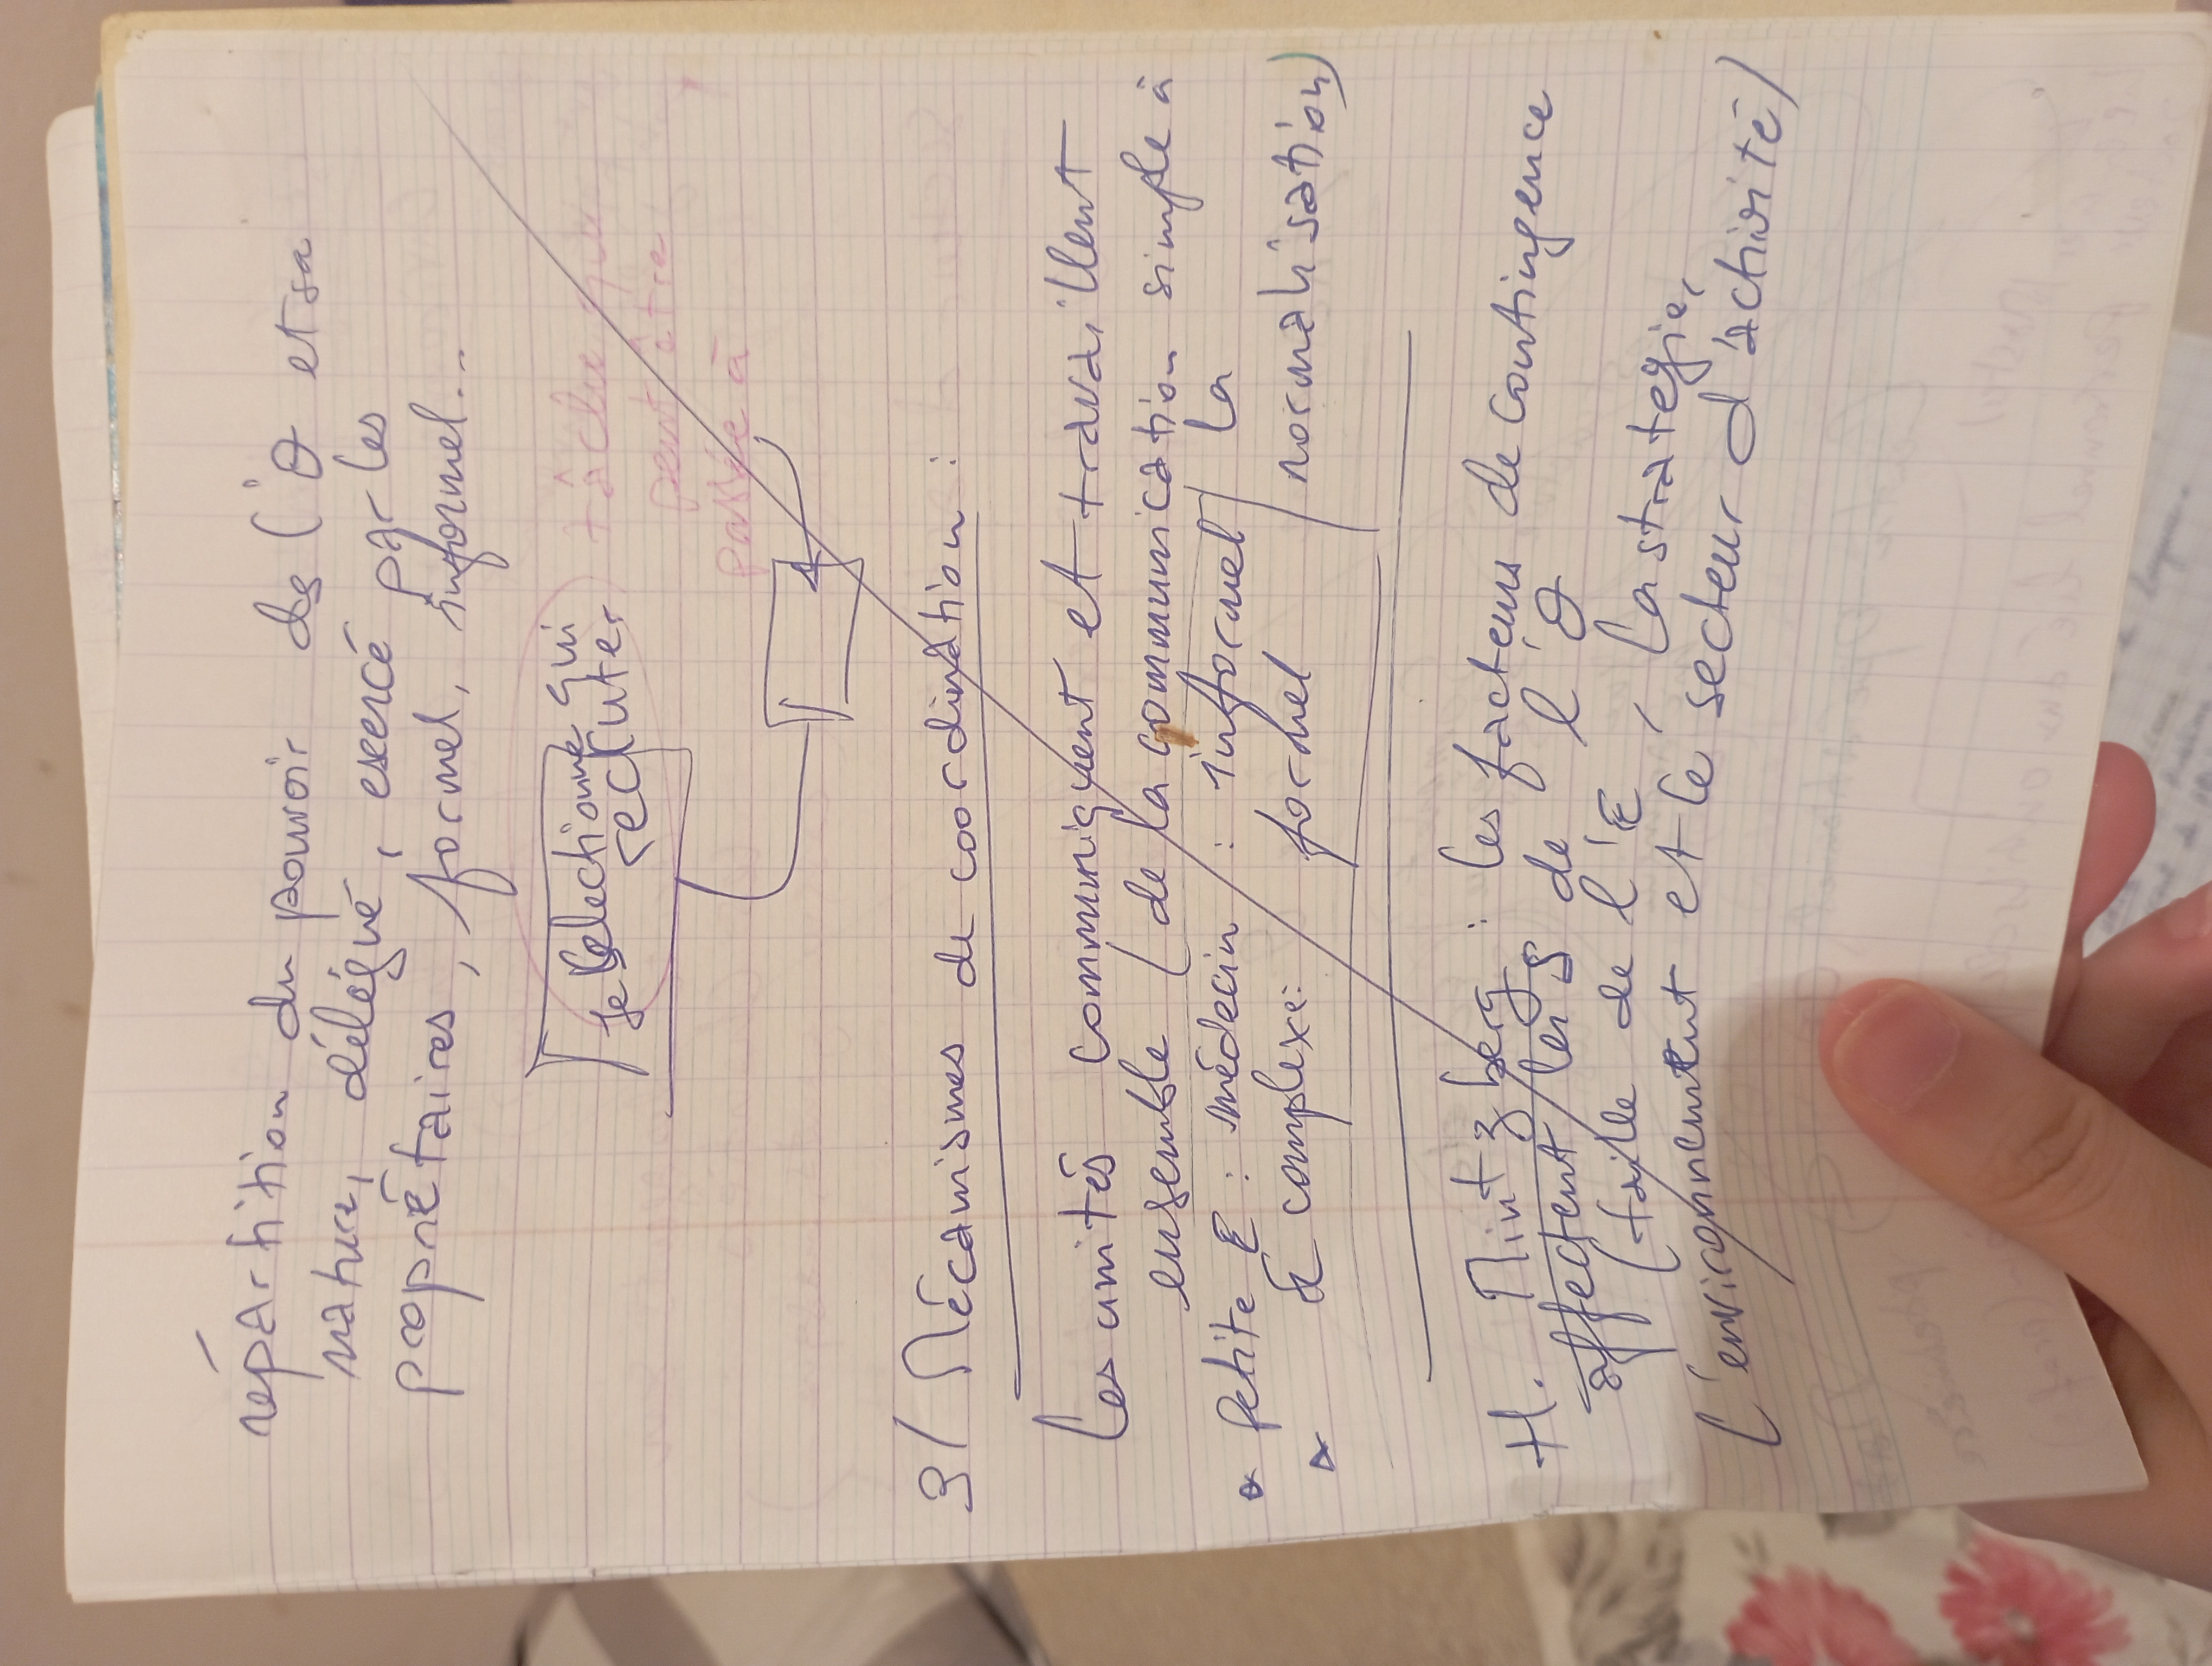 répartition du pouvoir ds l'O et sa
nature, délégué, exercé par les
propriétaires, formel, informel...
je sélectionne qui
recruter
tâche qui
peut être
passée à
3/ Mécanismes de coordination :
Les unités communiquent et travaillent
ensemble (de la communication simple à
la
normalisation)
petite E : médecin : informel
E complexe : formel
H. Mintzberg : les facteurs de contingence
affectent les S de l'O
(taille de l'E, la strategie,
l'environnement et le secteur d'activité)